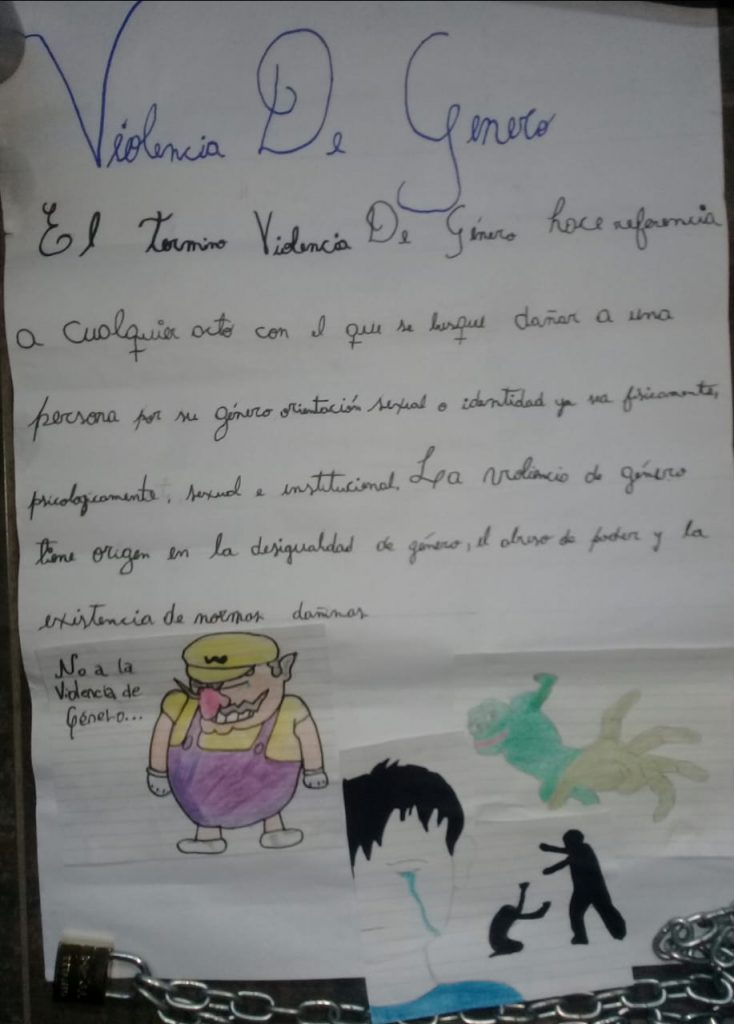 Violencia De Genero
El termino Violencia De Género hace referencia
a cualquier acto con el que se busque dañar a una
persona por su género orientación sexual o identidad ya sea físicamente,
psicologicamente, sexual e institucional. La violencia de género
tiene origen en la desigualdad de género, el abuso de poder y la
existencia de normas dañinas
No a la
Violencia de
Género...
W